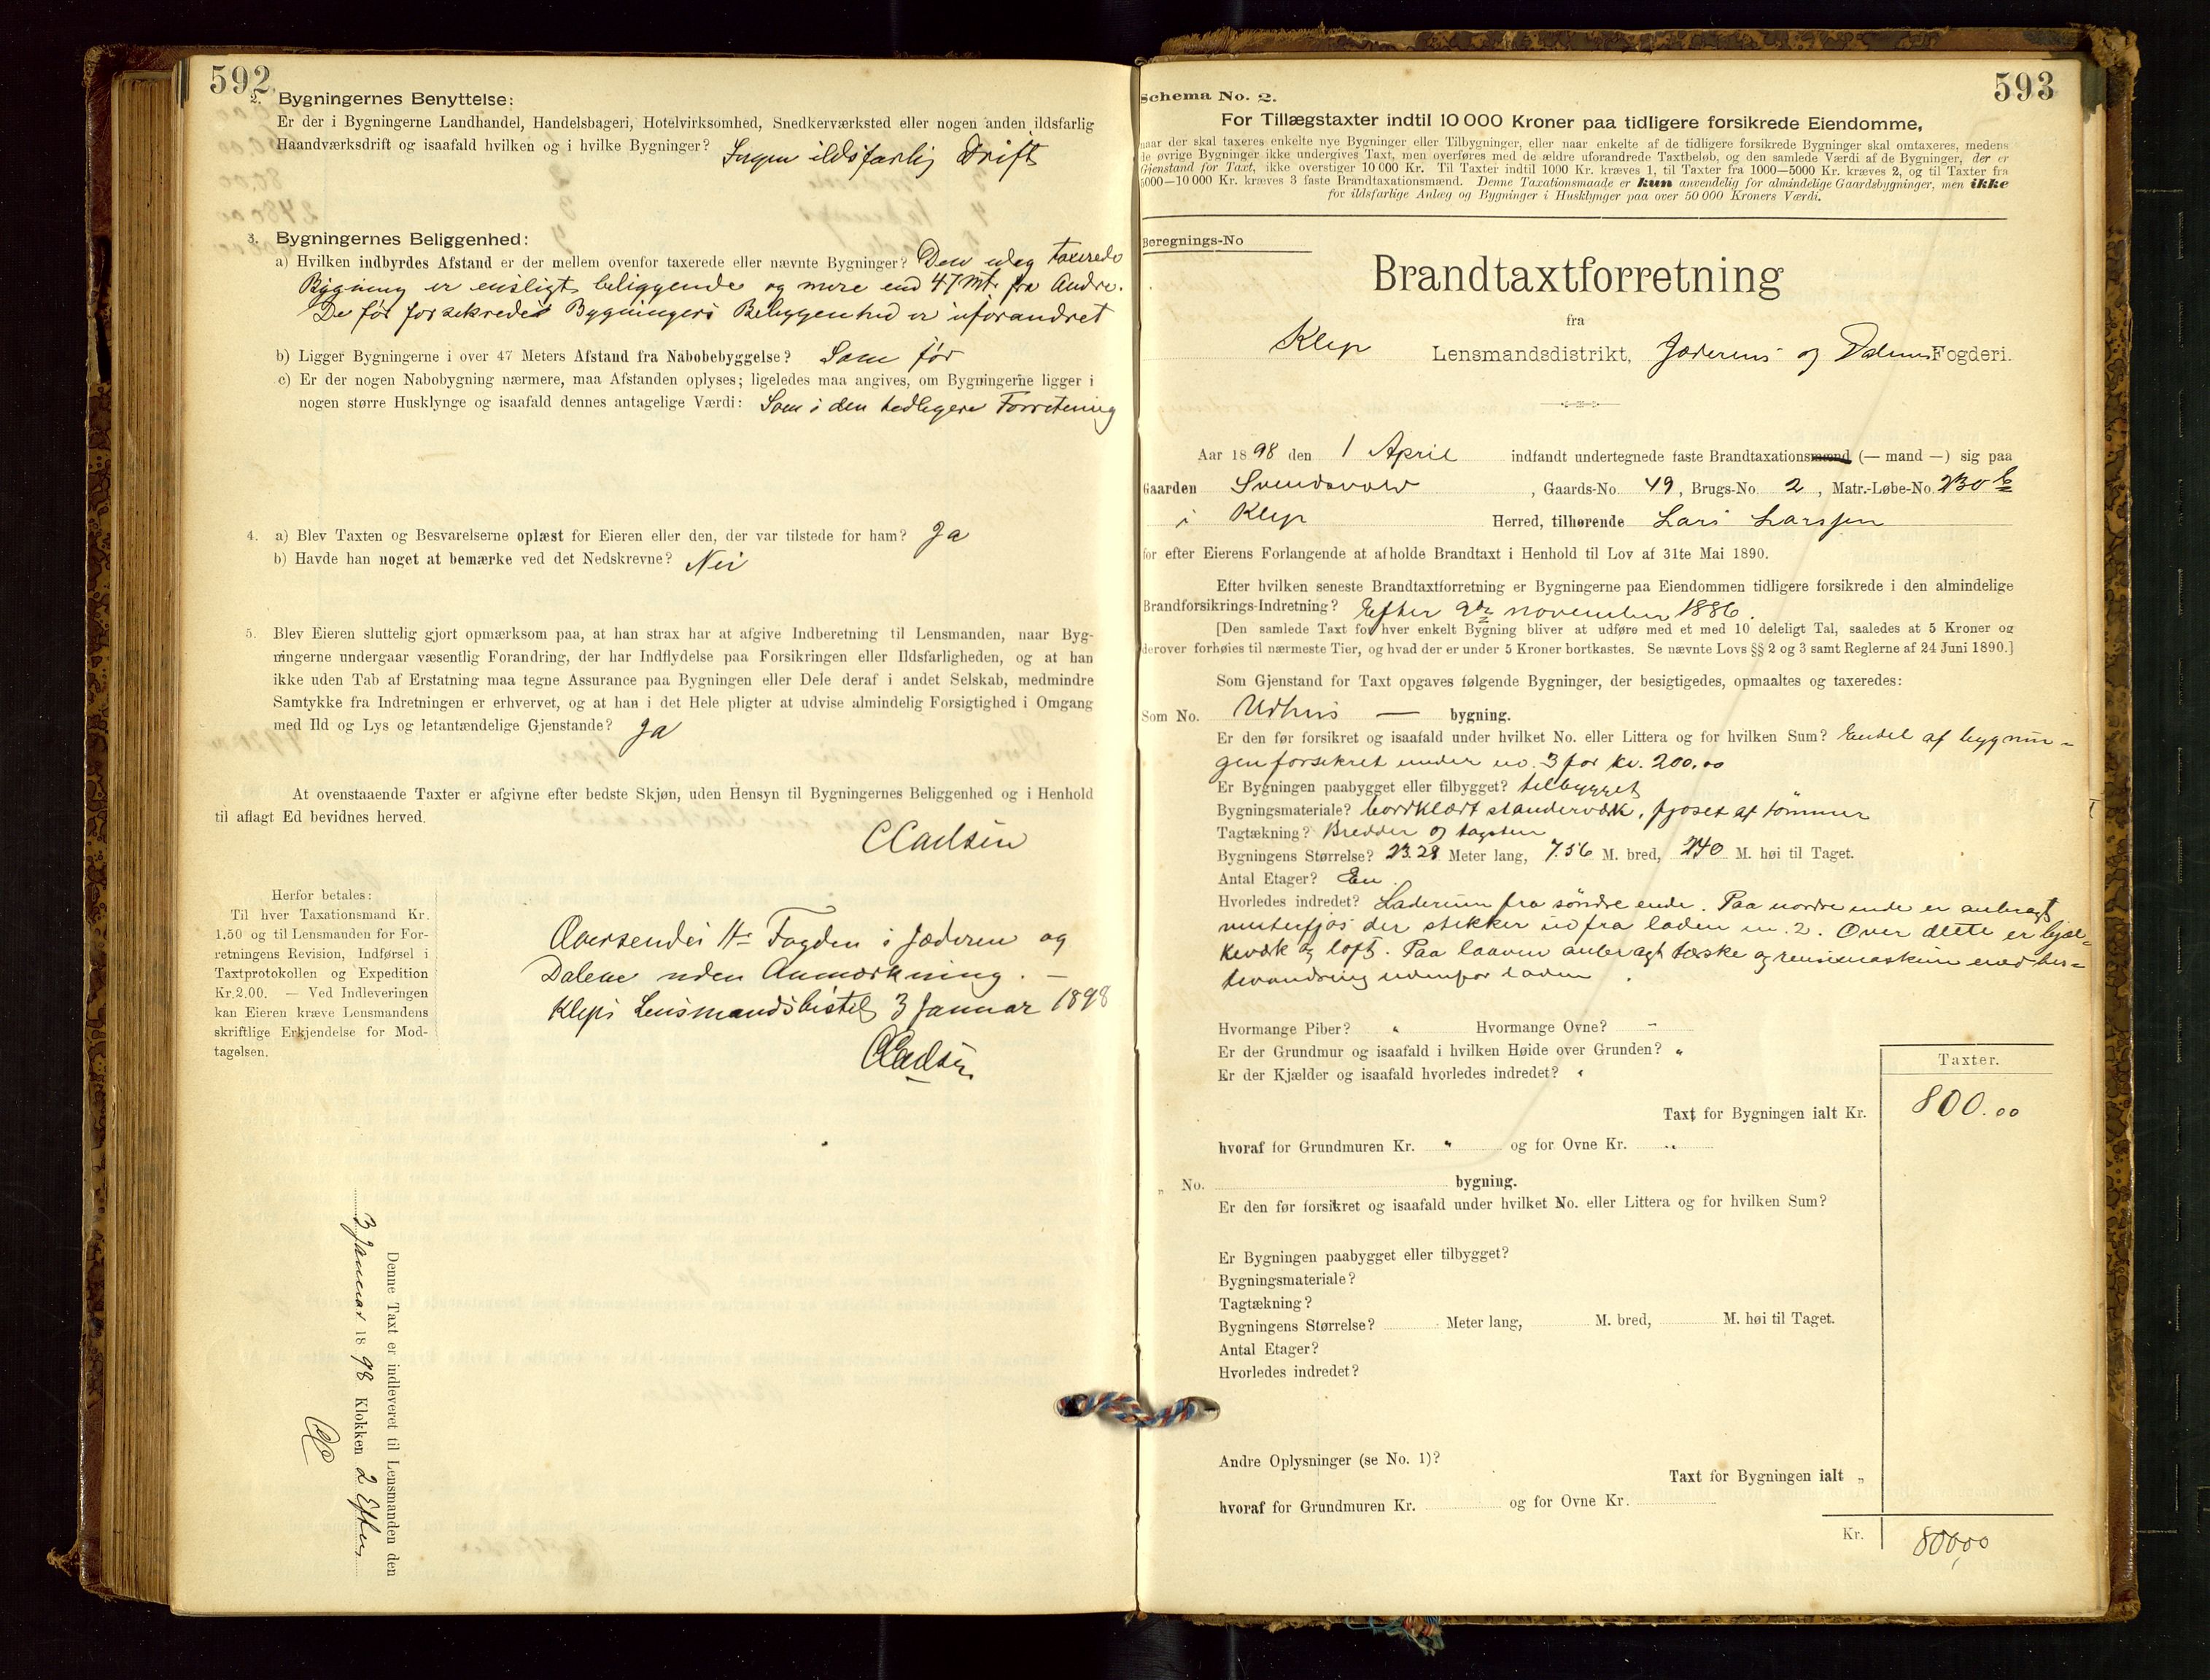 592
2. Bygningernes Benyttelse:
Er der i Bygningerne Landhandel, Handelsbageri, Hotelvirksomhed, Snedkerværksted eller nogen anden ildsfarlig
Haandværksdrift og isaafald hvilken og i hvilke Bygninger? Ingen ildsfarlig Drift
3. Bygningernes Beliggenhed:
a) Hvilken indbyrdes Afstand er der mellem ovenfor taxerede eller nævnte Bygninger? Den idag taxerede
Bygning er ensligt beliggende og mere end 47 mt. fra Andre.
De før forsikredes Bygningers Beliggenhed er uforandret
b) Ligger Bygningerne i over 47 Meters Afstand fra Nabobebyggelse? Som før
c) Er der nogen Nabobygning nærmere, maa Afstanden oplyses; ligeledes maa angives, om Bygningerne ligger i
nogen større Husklynge og isaafald dennes antagelige Værdi: Som i den tidligere Forretning
4. a) Blev Taxten og Besvarelserne oplæst for Eieren eller den, der var tilstede for ham? Ja
b) Havde han noget at bemærke ved det Nedskrevne? Nei
5. Blev Eieren sluttelig gjort opmærksom paa, at han strax har at afgive Indberetning til Lensmanden, naar Byg-
ningerne undergaar væsentlig Forandring, der har Indflydelse paa Forsikringen eller Ildsfarligheden, og at han
ikke uden Tab af Erstatning maa tegne Assurance paa Bygningen eller Dele deraf i andet Selskab, medmindre
Samtykke fra Indretningen er erhvervet, og at han i det Hele pligter at udvise almindelig Forsigtighed i Omgang
med Ild og Lys og letantændelige Gjenstande? Ja
At ovenstaaende Taxter er afgivne efter bedste Skjøn, uden Hensyn til Bygningernes Beliggenhed og i Henhold
til aflagt Ed bevidnes herved.
Herfor betales:
Til hver Taxationsmand Kr.
1.50 og til Lensmanden for For-
retningens Revision, Indførsel i
Taxtprotokollen og Expedition
Kr. 2.00. — Ved Indleveringen
kan Eieren kræve Lensmandens
skriftlige Erkjendelse for Mod-
tagelsen.
Oversendes Hr Fogden i Jæderen og
Dalene uden Anmærkning. —
Kleps Lensmandsbestel 3 Januar 1898
Denne Taxt er indleveret til Lensmanden den
3 Januar 1898 Klokken 2 Efterm
593
Schema No. 2.
For Tillægstaxter indtil 10 000 Kroner paa tidligere forsikrede Eiendomme,
naar der skal taxeres enkelte nye Bygninger eller Tilbygninger, eller naar enkelte af de tidligere forsikrede Bygninger skal omtaxeres, medens
de øvrige Bygninger ikke undergives Taxt, men overføres med de ældre uforandrede Taxtbeløb, og den samlede Værdi af de Bygninger, der er
Gjenstand for Taxt, ikke overstiger 10 000 Kr. Til Taxter indtil 1000 Kr. kræves 1, til Taxter fra 1000—5000 Kr. kræves 2, og til Taxter fra
5000—10 000 Kr. kræves 3 faste Brandtaxationsmænd. Denne Taxationsmaade er kun anvendelig for almindelige Gaardsbygninger, men ikke
for ildsfarlige Anlæg og Bygninger i Husklynger paa over 50 000 Kroners Værdi.
Beregnings-No
Brandtaxtforretning
fra
Klep Lensmandsdistrikt, Jæderens og Dalenes Fogderi.
Aar 1898 den 1 April indfandt undertegnede faste Brandtaxationsmænd (— mand —) sig paa
Gaarden , Gaards-No. 49, Brugs-No. 2, Matr.-Løbe-No. 230 b
i Klep Herred, tilhørende Lars Larssen
for efter Eierens Forlangende at afholde Brandtaxt i Henhold til Lov af 31te Mai 1890.
Efter hvilken seneste Brandtaxtforretning er Bygningerne paa Eiendommen tidligere forsikrede i den almindelige
Brandforsikrings-Indretning? Efter 9de november 1886.
[Den samlede Taxt for hver enkelt Bygning bliver at udføre med et med 10 deleligt Tal, saaledes at 5 Kroner og
derover forhøies til nærmeste Tier, og hvad der er under 5 Kroner bortkastes. Se nævnte Lovs §§ 2 og 3 samt Reglerne af 24 Juni 1890.]
Som Gjenstand for Taxt opgaves følgende Bygninger, der besigtigedes, opmaaltes og taxeredes:
Som No. Udhus — bygning.
Er den før forsikret og isaafald under hvilket No. eller Littera og for hvilken Sum? Endel af bygnin-
gen forsikret under no. 3 for kr. 200.00
Er Bygningen paabygget eller tilbygget? tilbygget
Bygningsmateriale? bordklædt standerværk, fjøset af tømmer
Tagtækning? Bredder og tagsten
Bygningens Størrelse? 23.28 Meter lang, 7.56 M. bred, 240 M. høi til Taget.
Antal Etager? En
Hvorledes indredet? Laderum fra søndre ende. Paa nordre ende er anbragt
vinterfjøs der stikker ud fra laden m. 2. Over dette er bjæl-
kevæk og loft. Paa laaven anbragt tærske og rensemaskin med hes-
tevandring udenfor laden.
Hvormange Piber? " Hvormange Ovne? "
Er der Grundmur og isaafald i hvilken Høide over Grunden? "
Er der Kjælder og isaafald hvorledes indredet? "
Taxter.
Taxt for Bygningen ialt Kr. 800.00
hvoraf for Grundmuren Kr. " og for Ovne Kr. "
" No. bygning.
Er den før forsikret og isaafald under hvilket No. eller Littera og for hvilken Sum?
Er Bygningen paabygget eller tilbygget?
Bygningsmateriale?
Tagtækning?
Bygningens Størrelse? Meter lang, M. bred, M. høi til Taget.
Antal Etager?
Hvorledes indredet?
Andre Oplysninger (se No. 1)?
Taxt for Bygningen ialt "
hvoraf for Grundmuren Kr. og for Ovne Kr.
Kr. 800,00